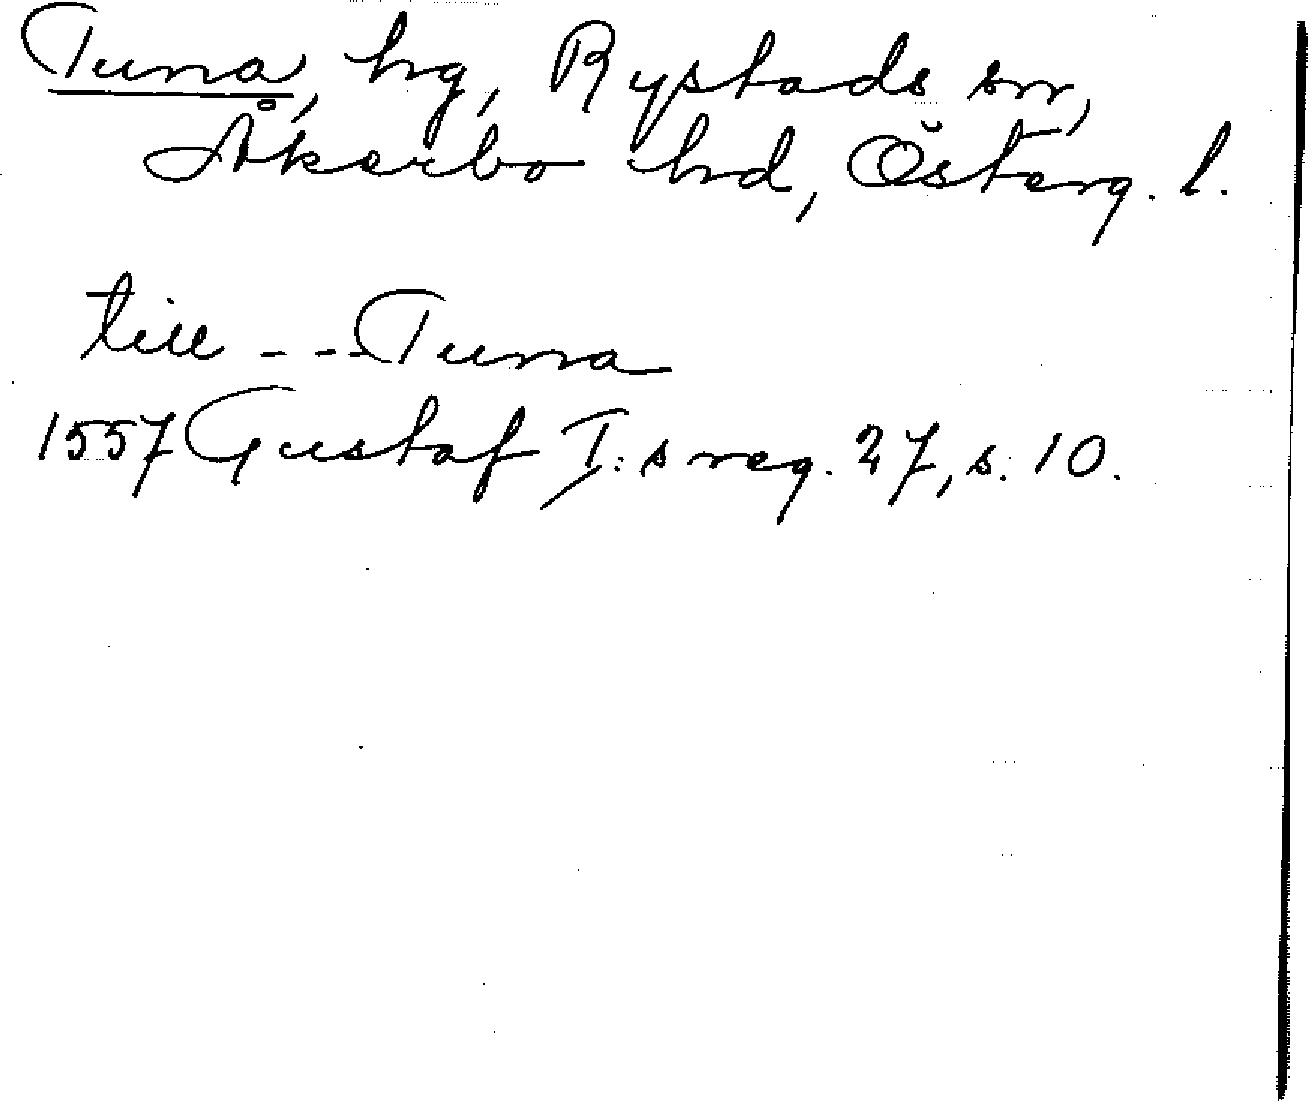 Tuna, hg, Rystads sn,
Åkerbo hd, Österg. l.
till - - - Tuna
1557 Gustaf I:s reg. 27, s. 10.